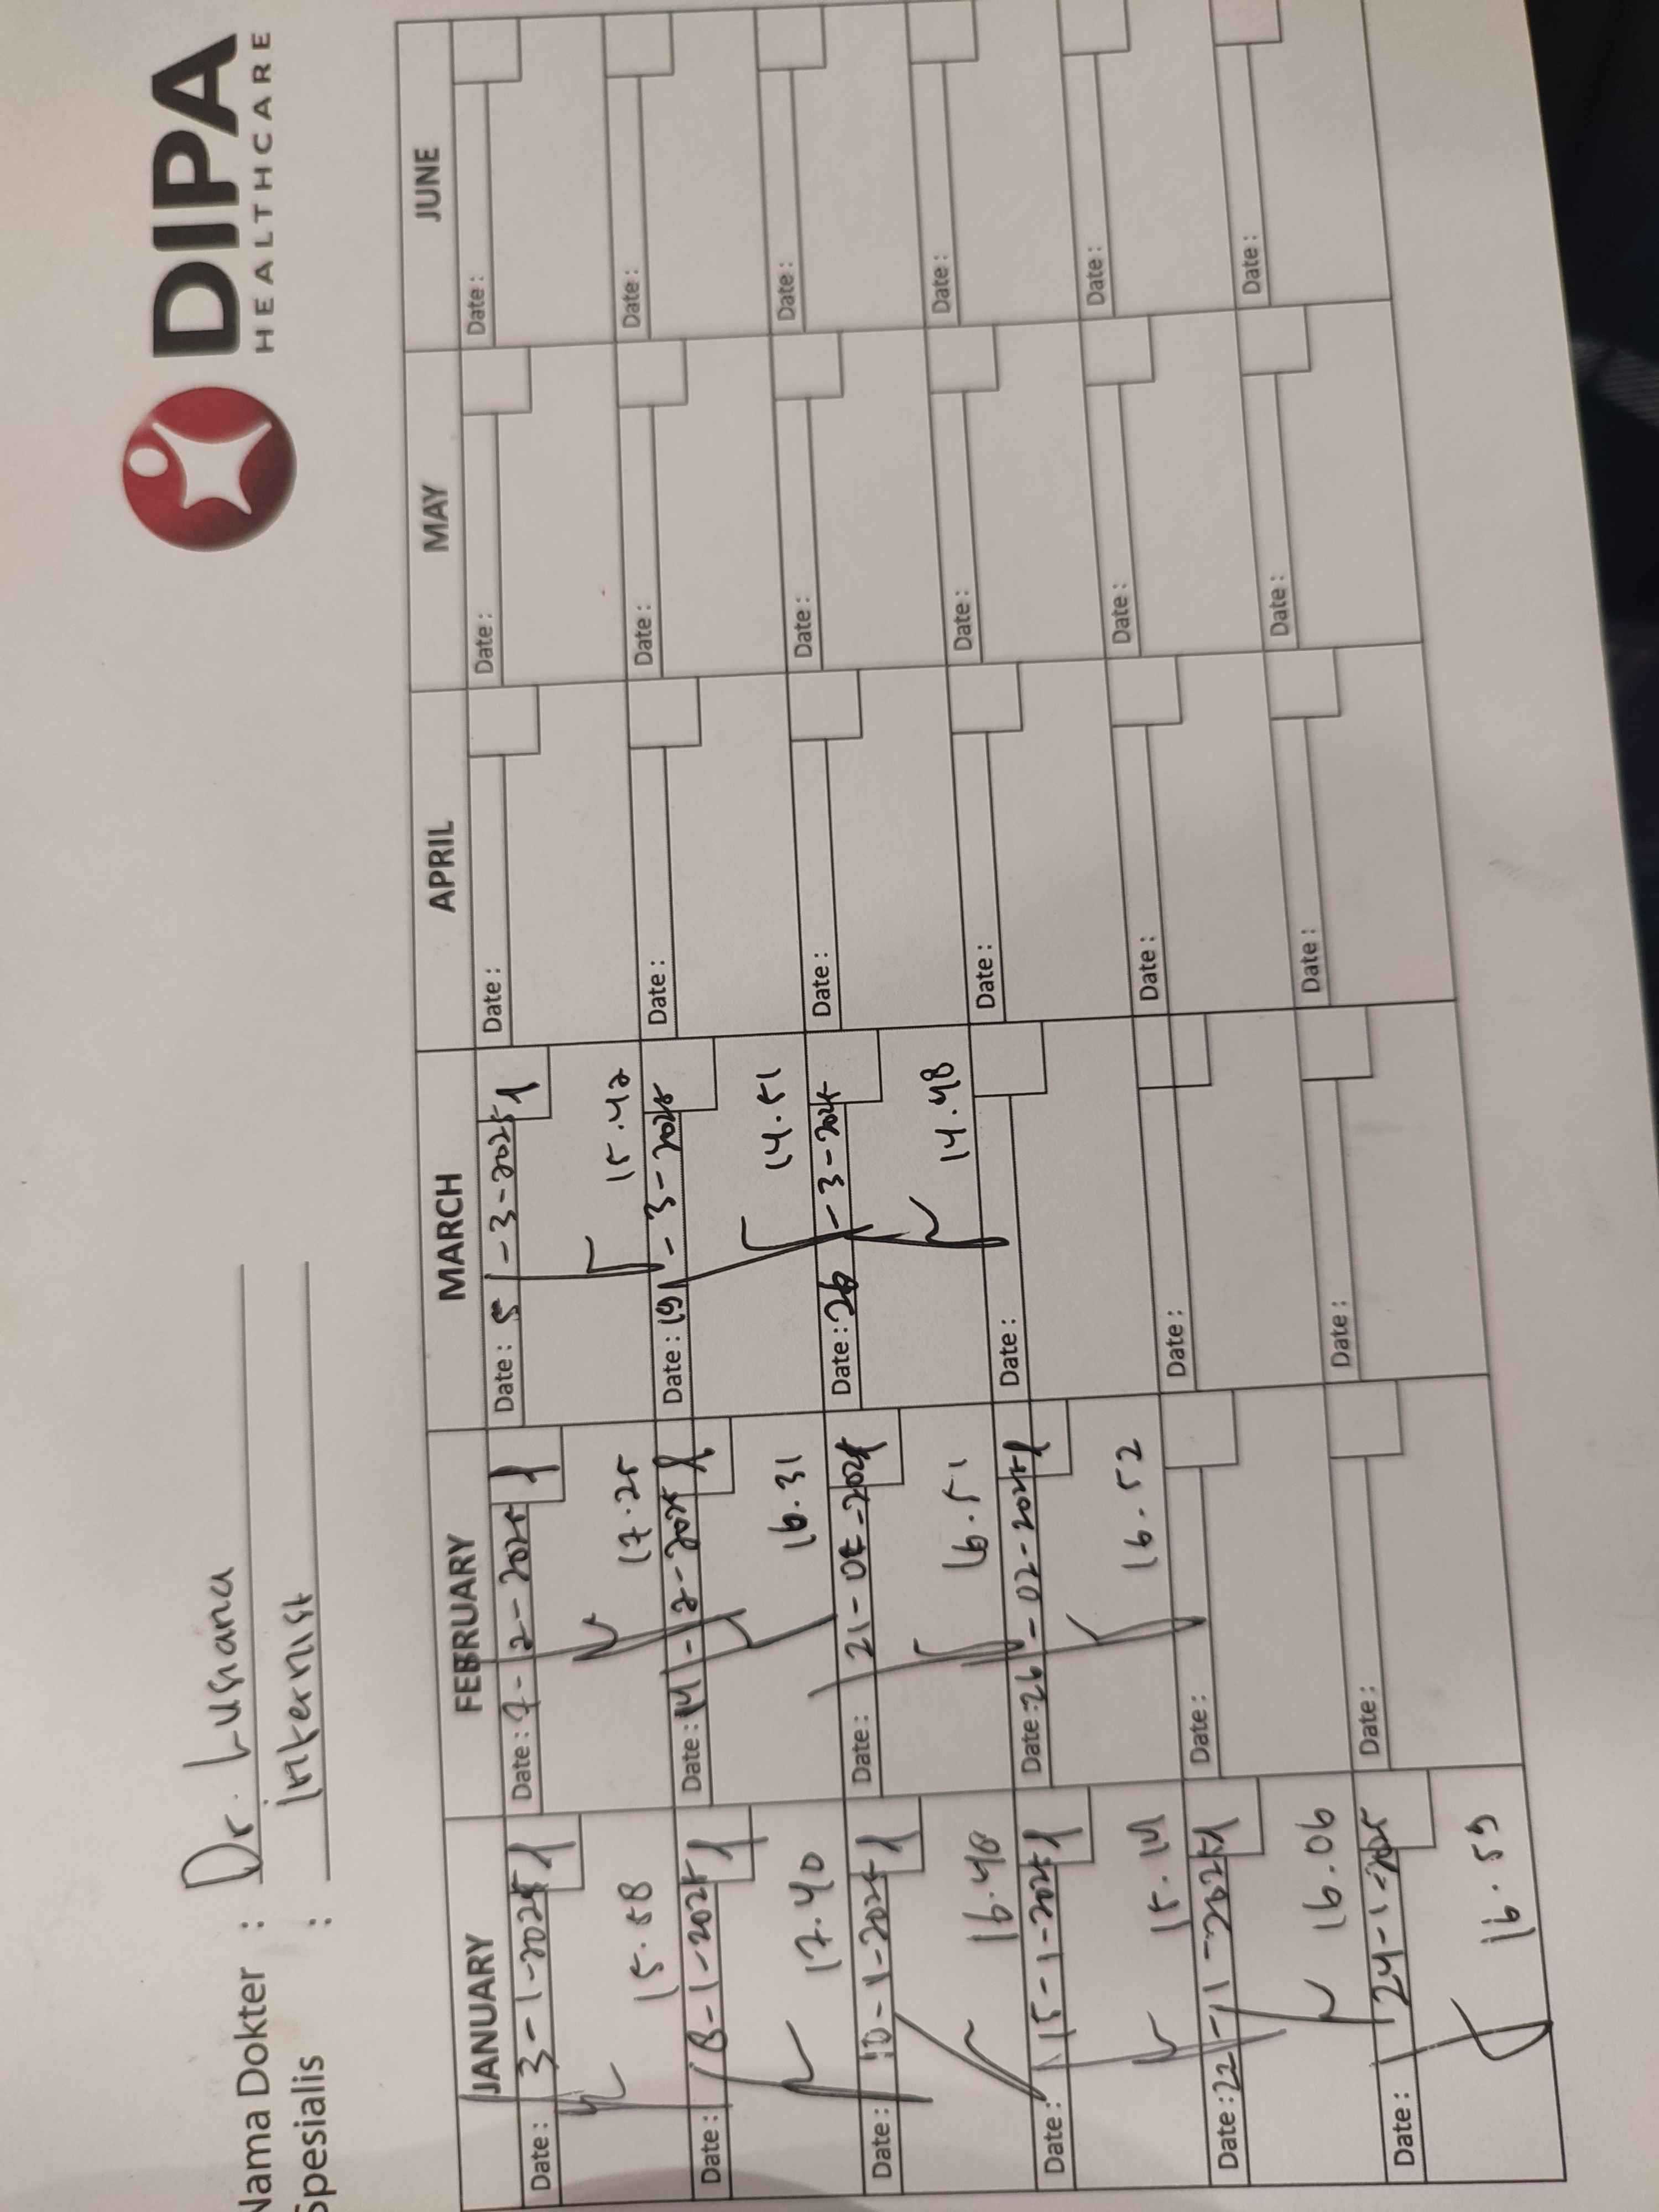 DIPA
HEALTHCARE
Nama Dokter : Dr. Lusiana
Spesialis : internist
JANUARY FEBRUARY MARCH APRIL MAY JUNE
Date : 3-1-2025 1 Date : 7-2-2025 1 Date : 5-3-2025 1 Date : Date : Date :
15.58 17.25 15.42
Date : 8-1-2025 1 Date : 14-2-2025 Date : 19-3-2025 Date : Date : Date :
17.40 16.31 14.51
Date : 10-1-2025 1 Date : 21-02-2025 Date : 26-3-2025 Date : Date : Date :
16.48 16.51 14.48
Date : 15-1-2025 1 Date : 26-02-2025 Date : Date : Date : Date :
15.14 16.52
Date : 22-1-2025 1 Date : Date : Date : Date : Date :
16.06
Date : 24-1-2025 Date : Date : Date : Date : Date :
16.59